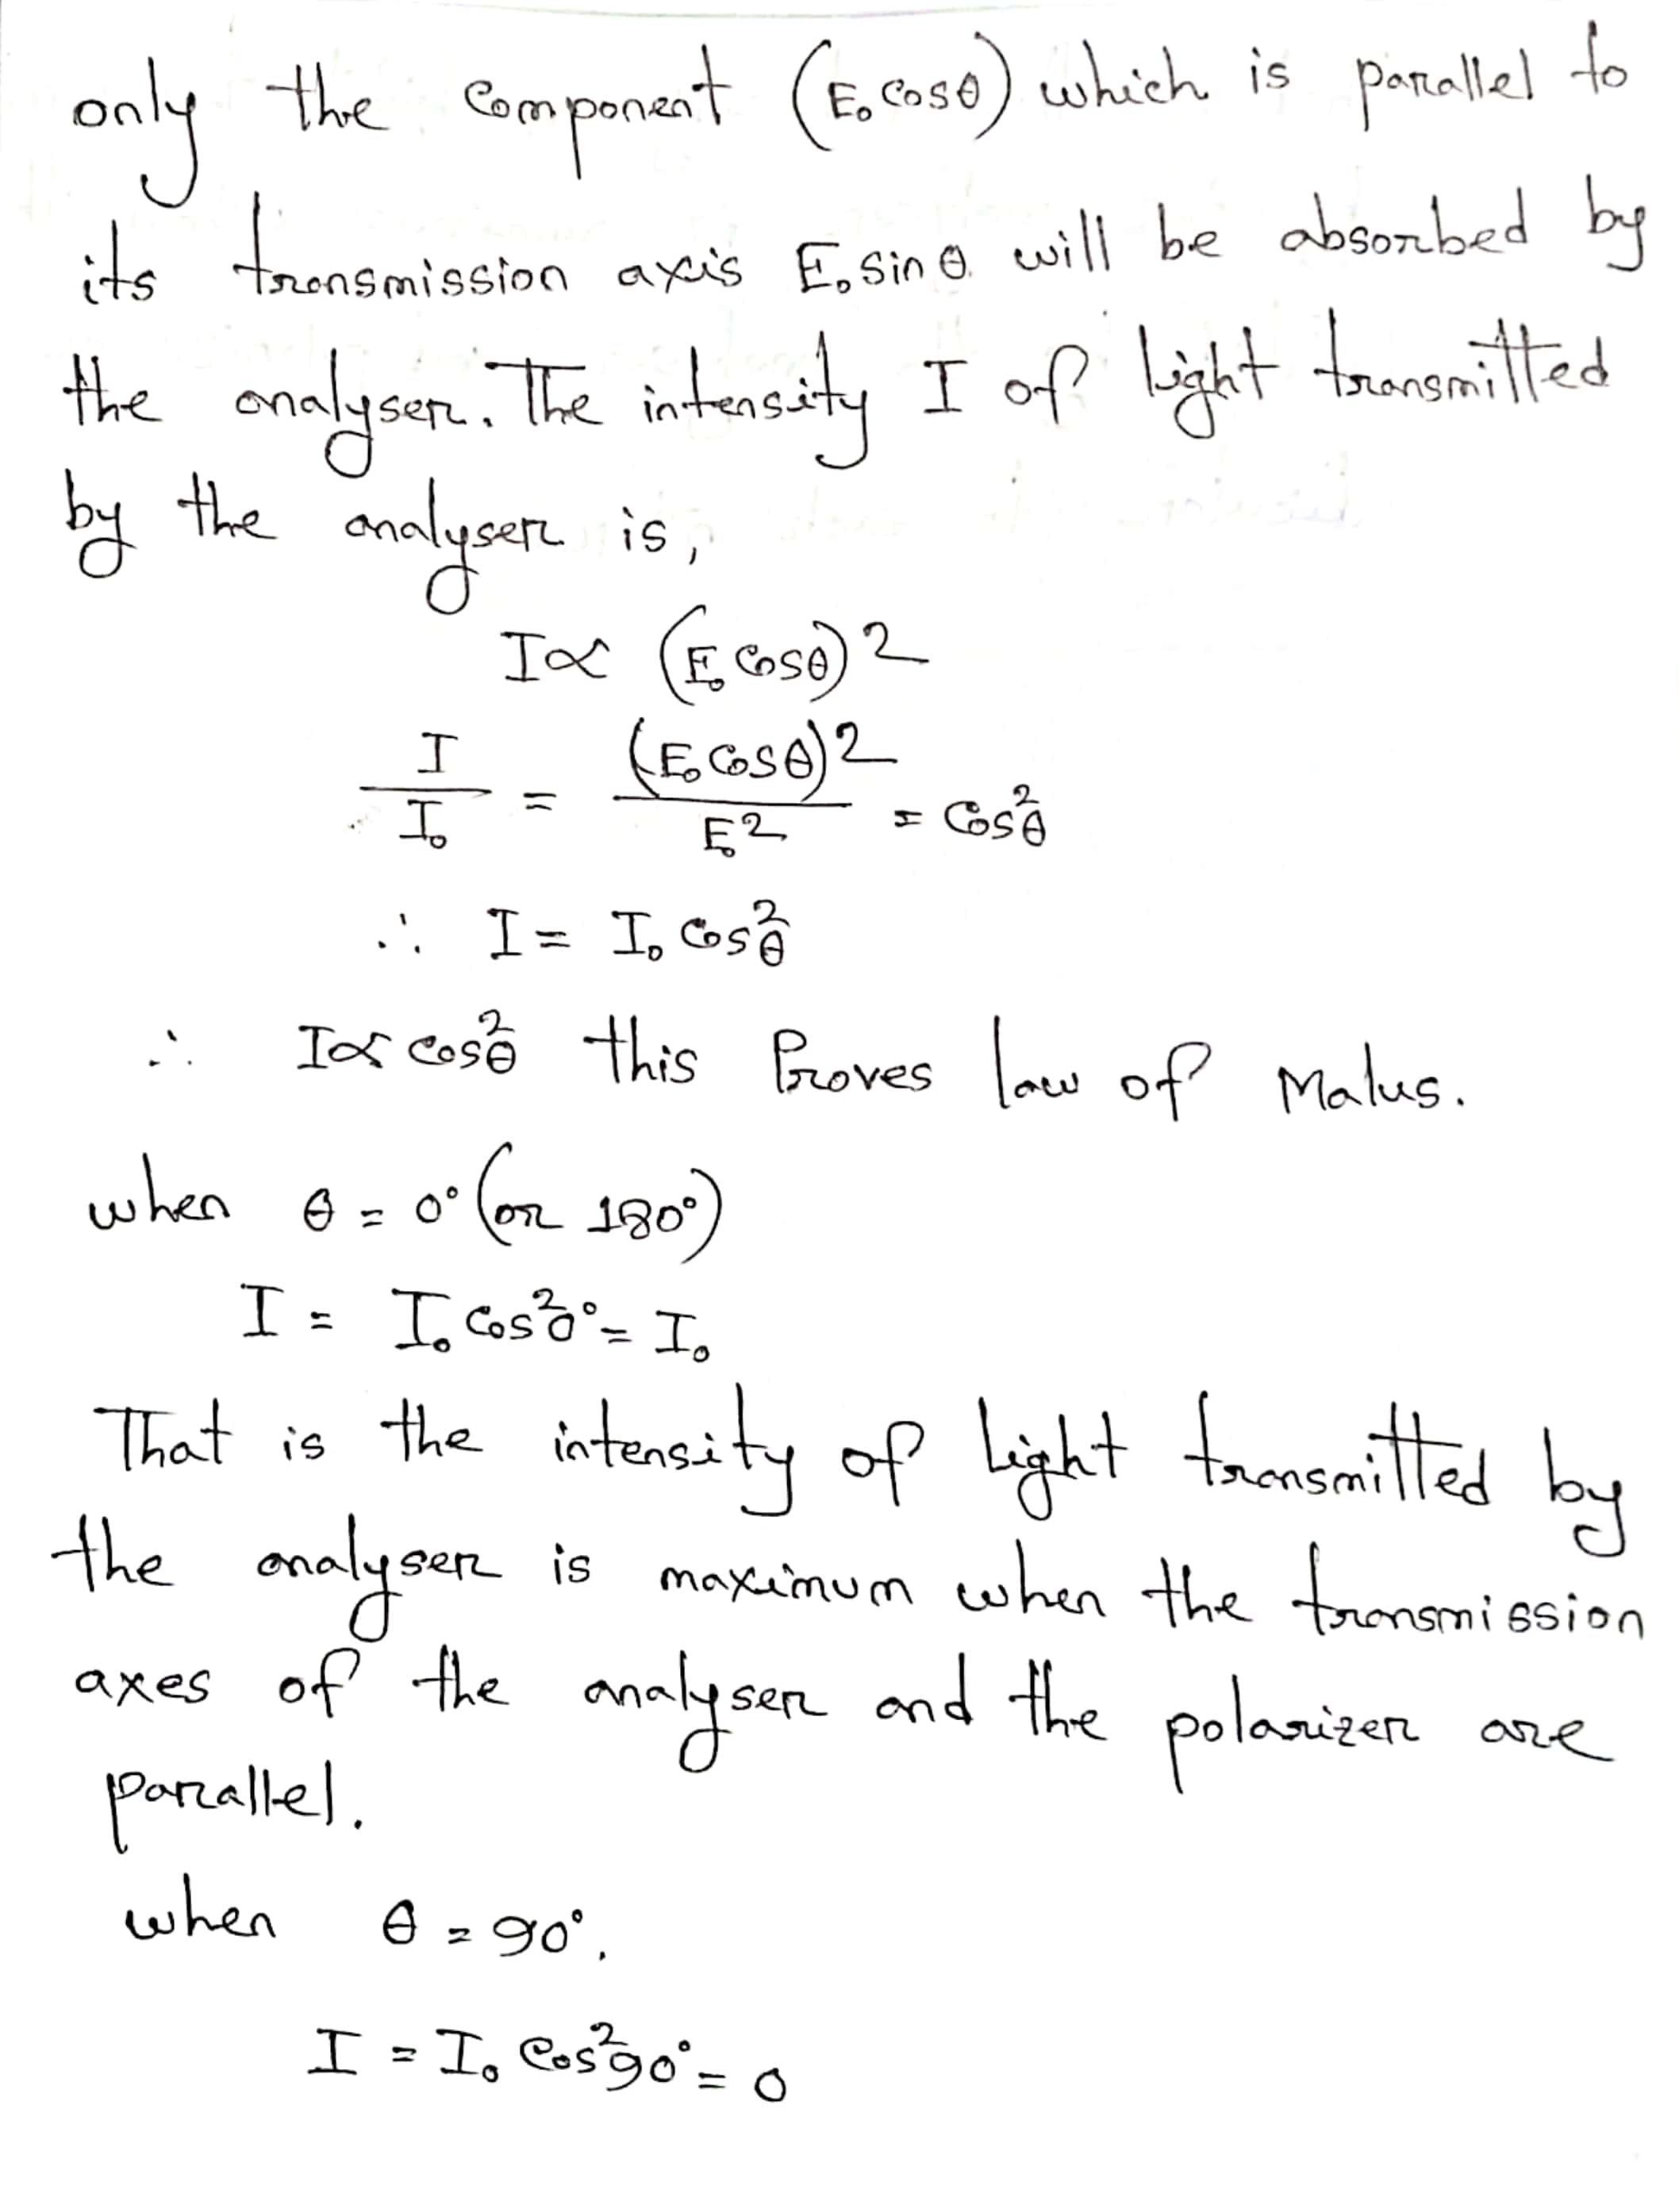 only the component (E₀ cosθ) which is parallel to
its transmission axis E₀ sinθ will be absorbed by
the analyser. The intensity I of light transmitted
by the analyser is,
I ∝ (E₀ cosθ)²
I/I₀ = (E₀ cosθ)²/E₀² = cos²θ
∴ I = I₀ cos²θ
∴ I ∝ cos²θ this Proves law of Malus.
when θ = 0° (or 180°)
I = I₀ cos²0° = I₀
That is the intensity of light transmitted by
the analyser is maximum when the transmission
axes of the analyser and the polarizer are
parallel.
when θ = 90°.
I = I₀ cos²90° = 0